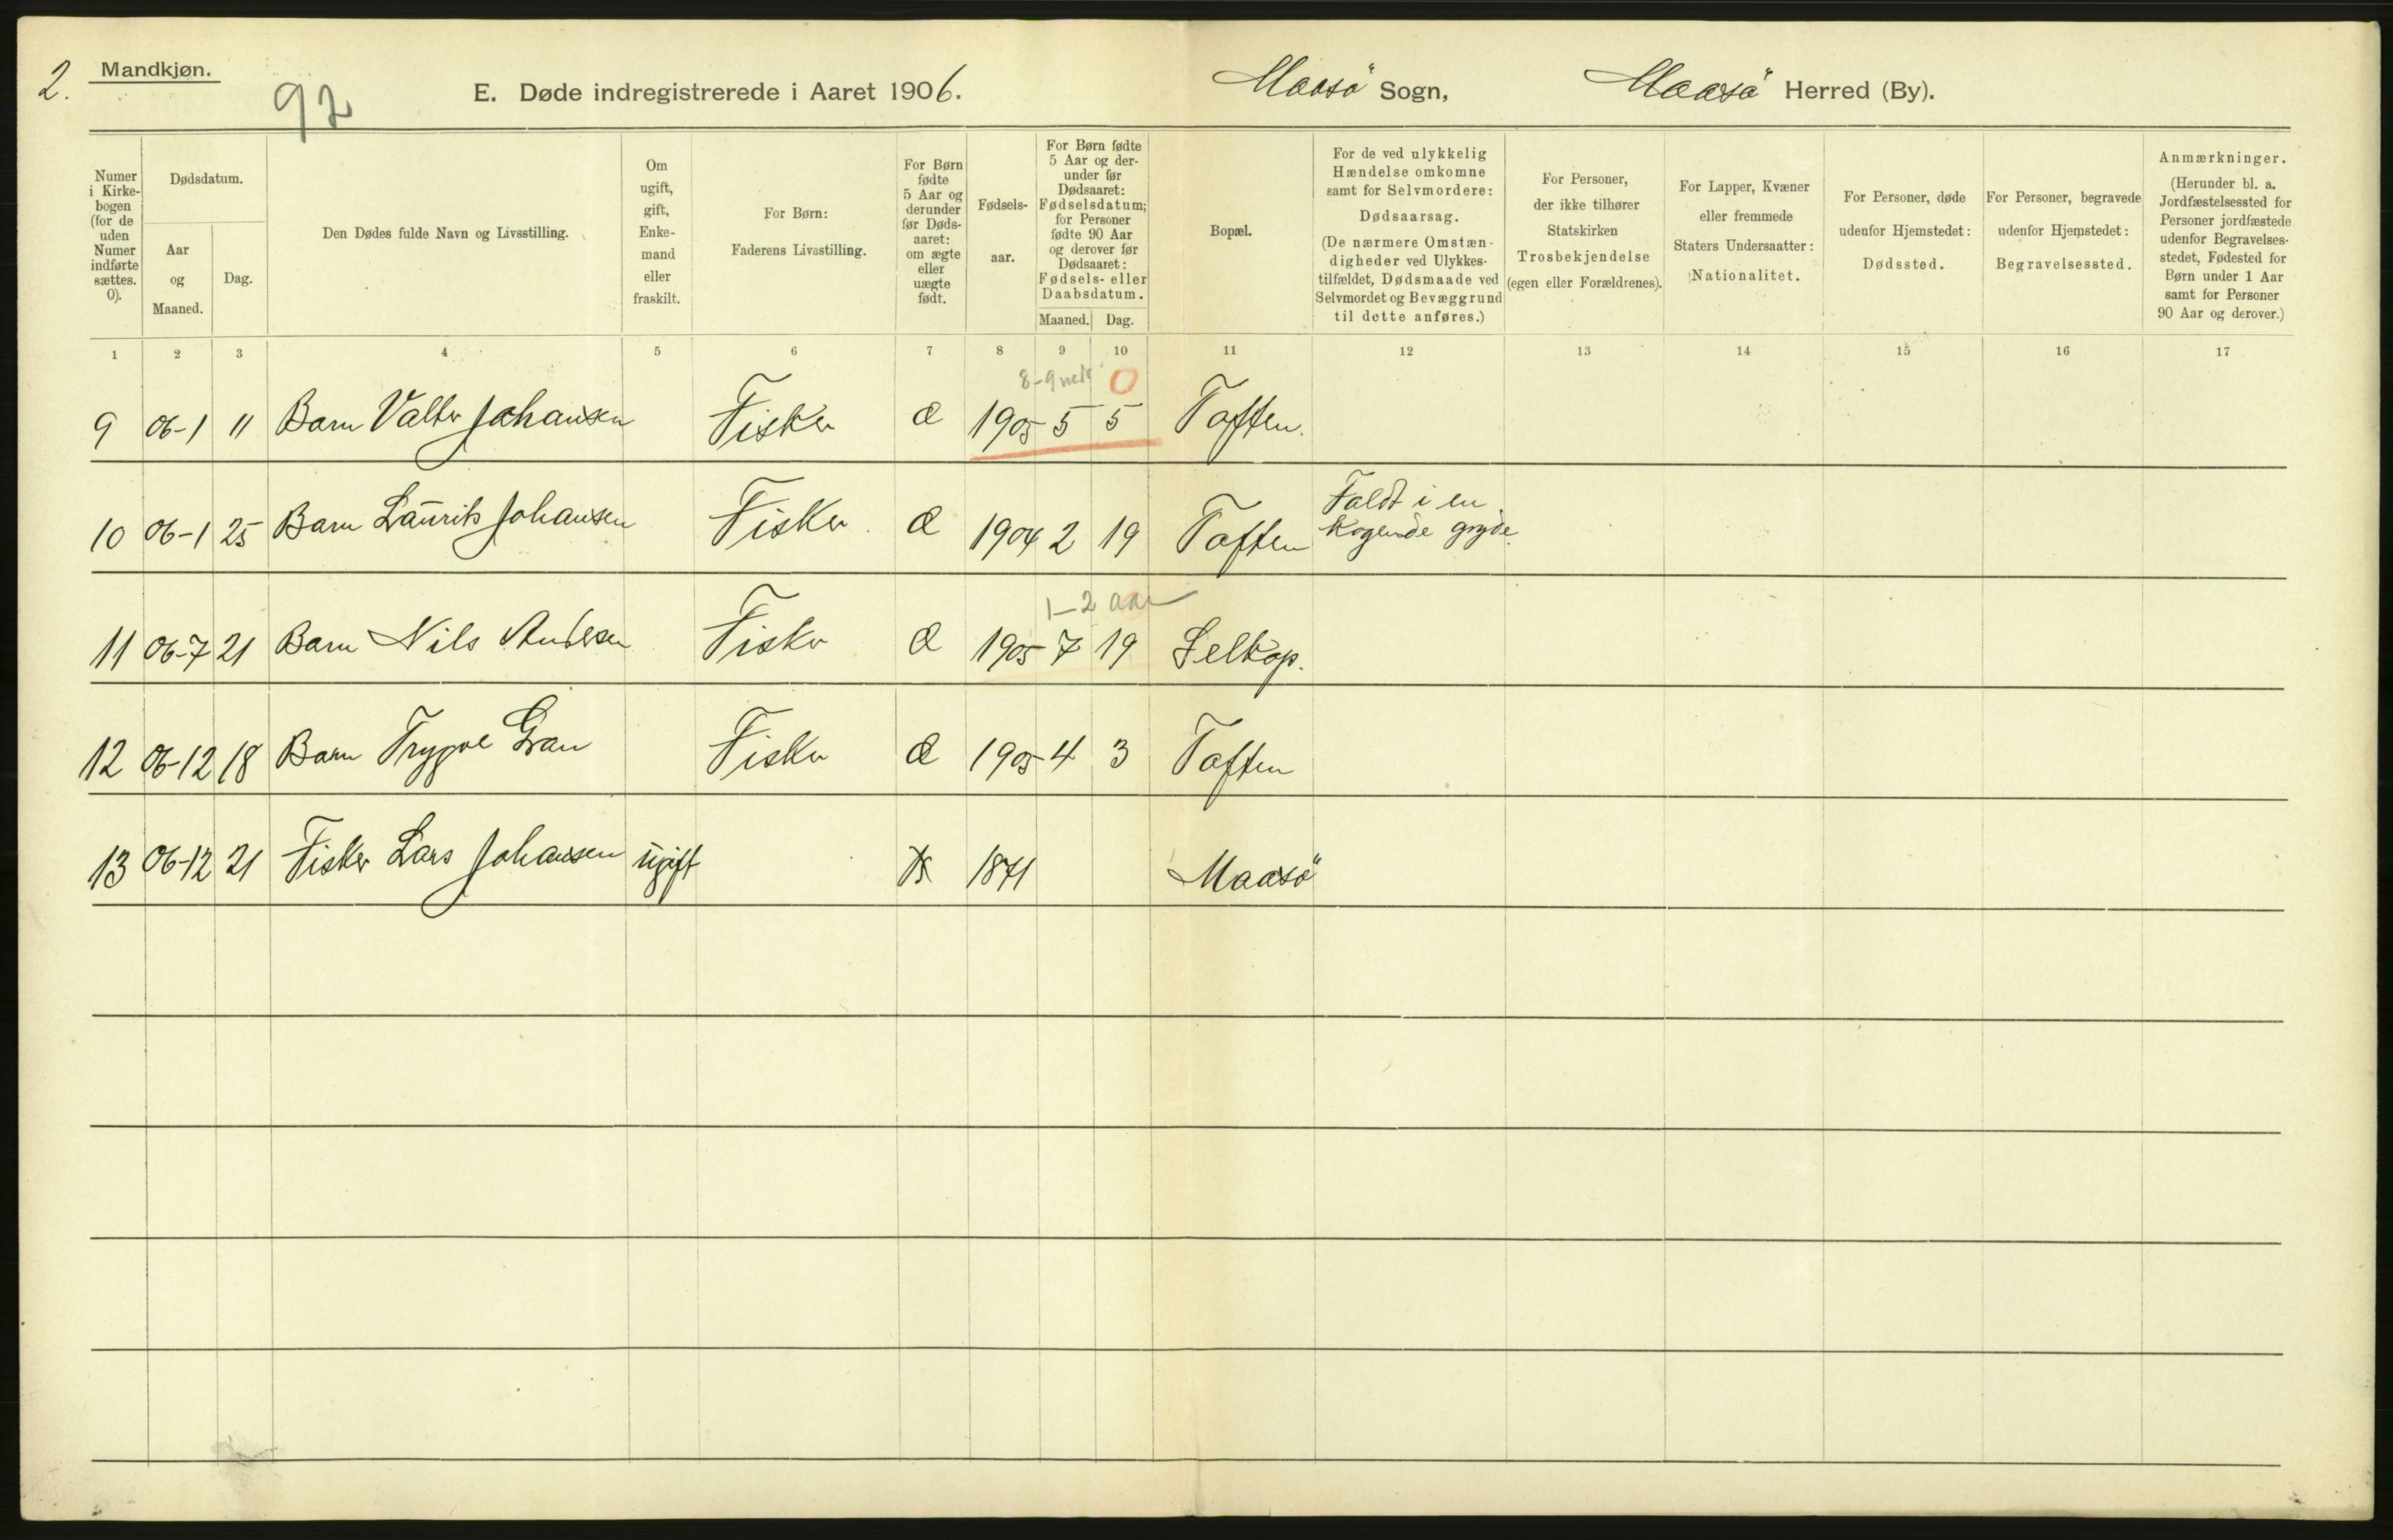 2.
Mandkjøn.
92
E. Døde indregistrerede i Aaret 1906.
Maasö Sogn,
Maasö Herred (By).
Numer i Kirke-bogen (for de uden Numer indførte sættes. 0).
Dødsdatum.
Aar og Maaned.
Dag.
Den Dødes fulde Navn og Livsstilling.
Om ugift, gift, Enke-mand eller fraskilt.
For Børn: Faderens Livsstilling.
For Børn fødte 5 Aar og derunder før Døds-aaret: om ægte eller uægte født.
Fødsels-aar.
For Børn fødte 5 Aar og der-under før Dødsaaret: Fødselsdatum; for Personer fødte 90 Aar og derover før Dødsaaret: Fødsels- eller Daabsdatum.
Maaned. Dag.
Bopæl.
For de ved ulykkelig Hændelse omkomne samt for Selvmordere: Dødsaarsag. (De nærmere Omstæn-digheder ved Ulykkes-tilfældet, Dødsmaade ved Selvmordet og Bevæggrund til dette anføres.)
For Personer, der ikke tilhører Statskirken Trosbekjendelse (egen eller Forældrenes).
For Lapper, Kvæner eller fremmede Staters Undersaatter: Nationalitet.
For Personer, døde udenfor Hjemstedet: Dødssted.
For Personer, begravede udenfor Hjemstedet: Begravelsessted.
Anmærkninger. (Herunder bl. a. Jordfæstelsessted for Personer jordfæstede udenfor Begravelses-stedet, Fødested for Børn under 1 Aar samt for Personer 90 Aar og derover.)
1 2 3 4 5 6 7 8 9 10 11 12 13 14 15 16 17
8-9 0
9 06-1 11 Barn Valter Johansen Fisker Æ 1905 5 5 Toften.
Faldt i en
10 06-1 25 Barn Laurits Johansen Fisker Æ 1904 2 19 Toften kogende gryde.
1-2 aar
11 06-7 21 Barn Nils Andersen Fisker Æ 1905 7 19 Selkop.
12 06-12 18 Barn Trygve Gran Fisker Æ 1905 4 3 Toften
13 06-12 21 Fisker Lars Johansen ugift 1871 Maasö